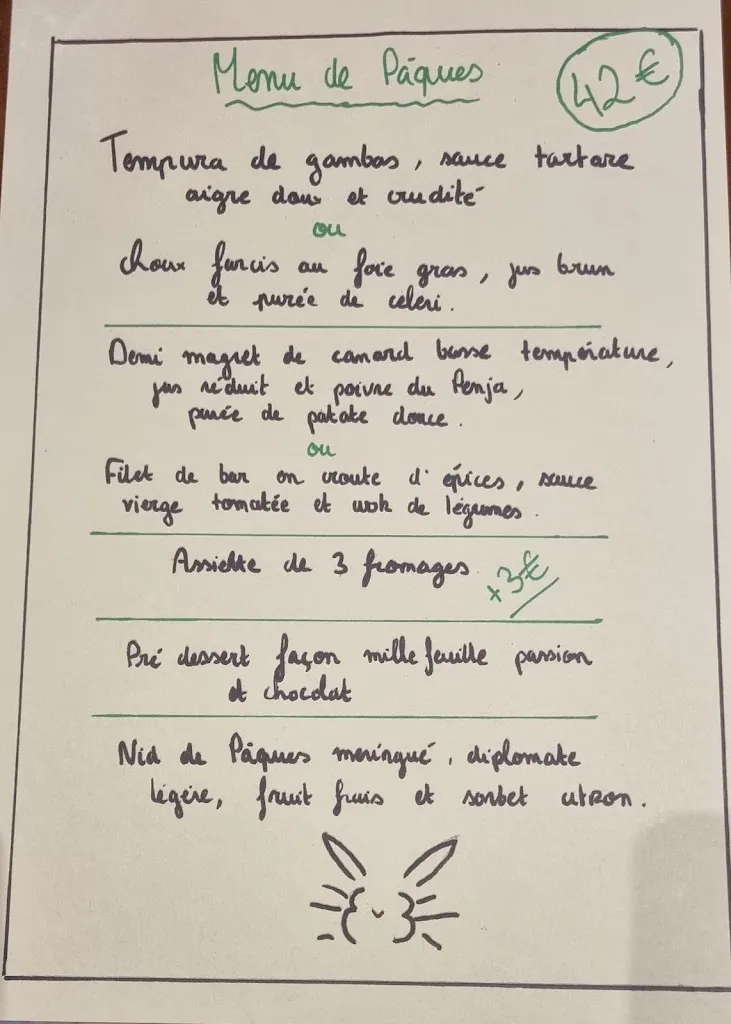 Menu de Pâques
42 €
Tempura de gambas, sauce tartare
aigre doux et crudité
ou
Choux farcis au foie gras, jus brun
et purée de céleri.
Demi magret de canard basse température,
jus réduit et poivre du Penja,
purée de patate douce.
ou
Filet de bar en croute d'épices, sauce
vierge tomatée et wok de légumes.
Assiette de 3 fromages
+3€
Pré dessert façon mille feuille passion
et chocolat
Nid de Pâques meringué, diplomate
légère, fruit frais et sorbet citron.